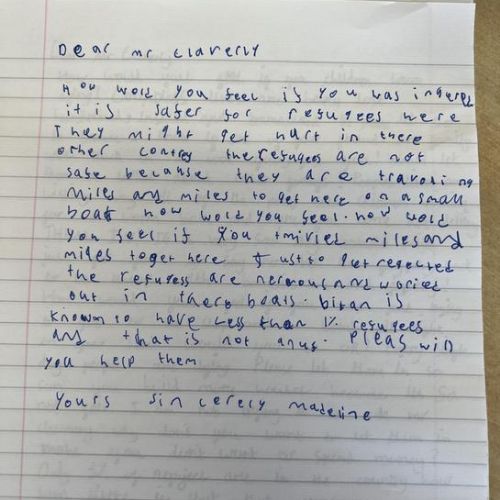 Dear mr claverly
How wold you feel if you was ingered
it is safer for refugees here
They might get hurt in there
other contrey the refugees are not
safe because they are traveling
miles and miles to get here on a small
boat how wold you feel. how wold
you feel if you miles and
miles to get here just to get rejected
the refugess are nervous and woried
out in there boats. bitan is
known to have less than 1% refugees
and that is not enus. Pleas will
you help them
Yours sincerely madeline